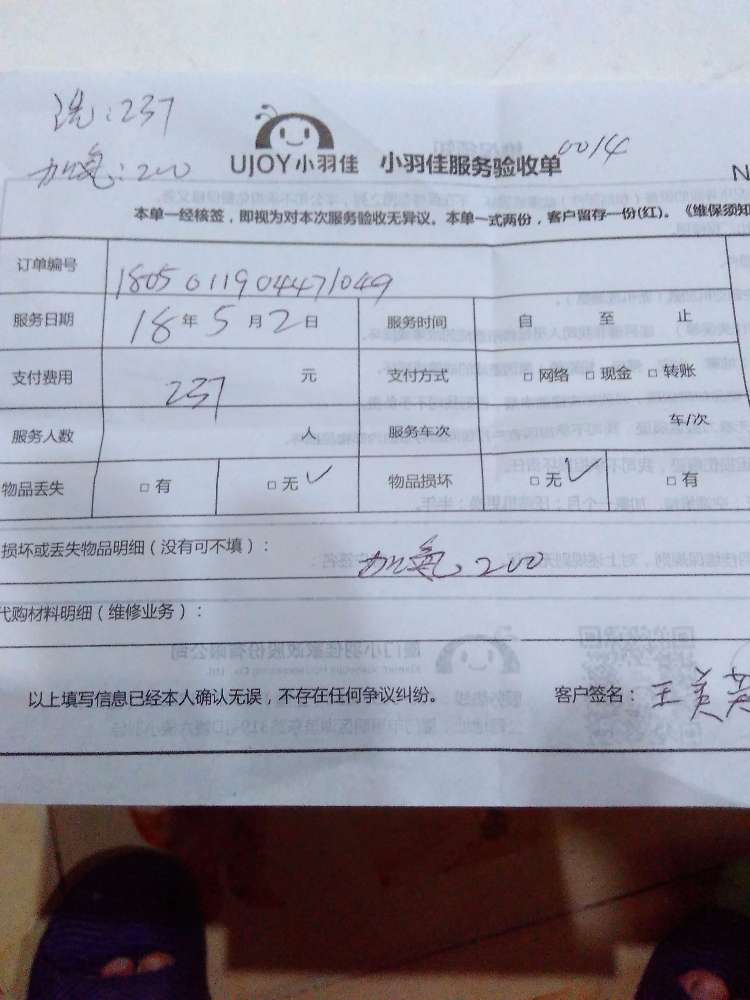 洗:237
加氟:200
UJOY小羽佳 小羽佳服务验收单 0014
N
本单一经核签,即视为对本次服务验收无异议。本单一式两份,客户留存一份(红)。《维保须知
订单编号 1805011904471049
服务日期 18年5月2日 服务时间 自 至 止
支付费用 237 元 支付方式 □网络 □现金 □转账
服务人数 人 服务车次 车/次
物品丢失 □有 □无✓ 物品损坏 □无✓ □有
损坏或丢失物品明细(没有可不填):
加氟 200
代购材料明细(维修业务):
以上填写信息已经本人确认无误,不存在任何争议纠纷。 客户签名:王美英